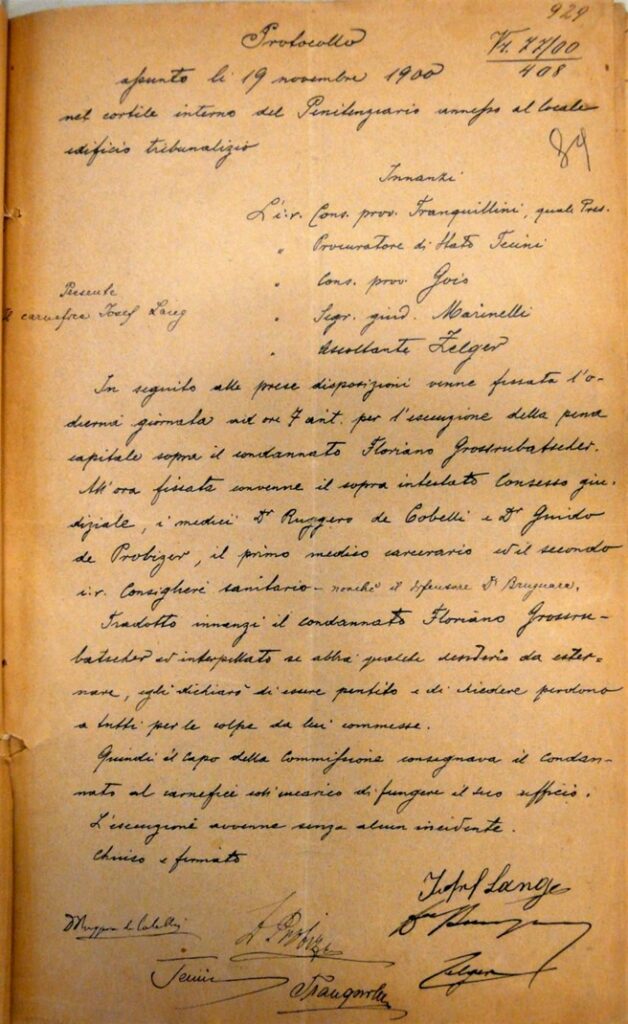 929
Protocollo
Vr. 77/00
408
assunto li 19 novembre 1900
nel cortile interno del Penitenziario annesso al locale
edificio tribunalizio
34
Innanzi
L'i.r. Cons. prov. Tranquillini, quale Pres.
" Procuratore di Stato Tecini
" Cons. prov. Goio
Presente
il carnefice Josef Lang
" Segr. giud. Marinelli
" Ascoltante Zelger
In seguito alle prese disposizioni venne fissata l'o-
dierna giornata ad ore 7 ant. per l'esecuzione della pena
capitale sopra il condannato Floriano Grossrubatscher.
All'ora fissata convenne il sopra intestato Consesso giu-
diziale, i medici Dr Ruggero de Cobelli e Dr Guido
de Probizer, il primo medico carcerario ed il secondo
i.r. Consigliere sanitario - nonchè il difensore Dr Brugnara.
Tradotto innanzi il condannato Floriano Grossru-
batscher ed interpellato se abbia qualche desiderio da ester-
nare, egli dichiarò di essere pentito e di chiedere perdono
a tutti per le colpe da lui commesse.
Quindi il capo della Commissione consegnava il condan-
nato al carnefice coll'incarico di fungere il suo ufficio.
L'esecuzione avvenne senza alcun incidente.
Chiuso e firmato
Josef Lang
Dr Ruggero de Cobelli
Dr Probizer
Tecini
Zelger